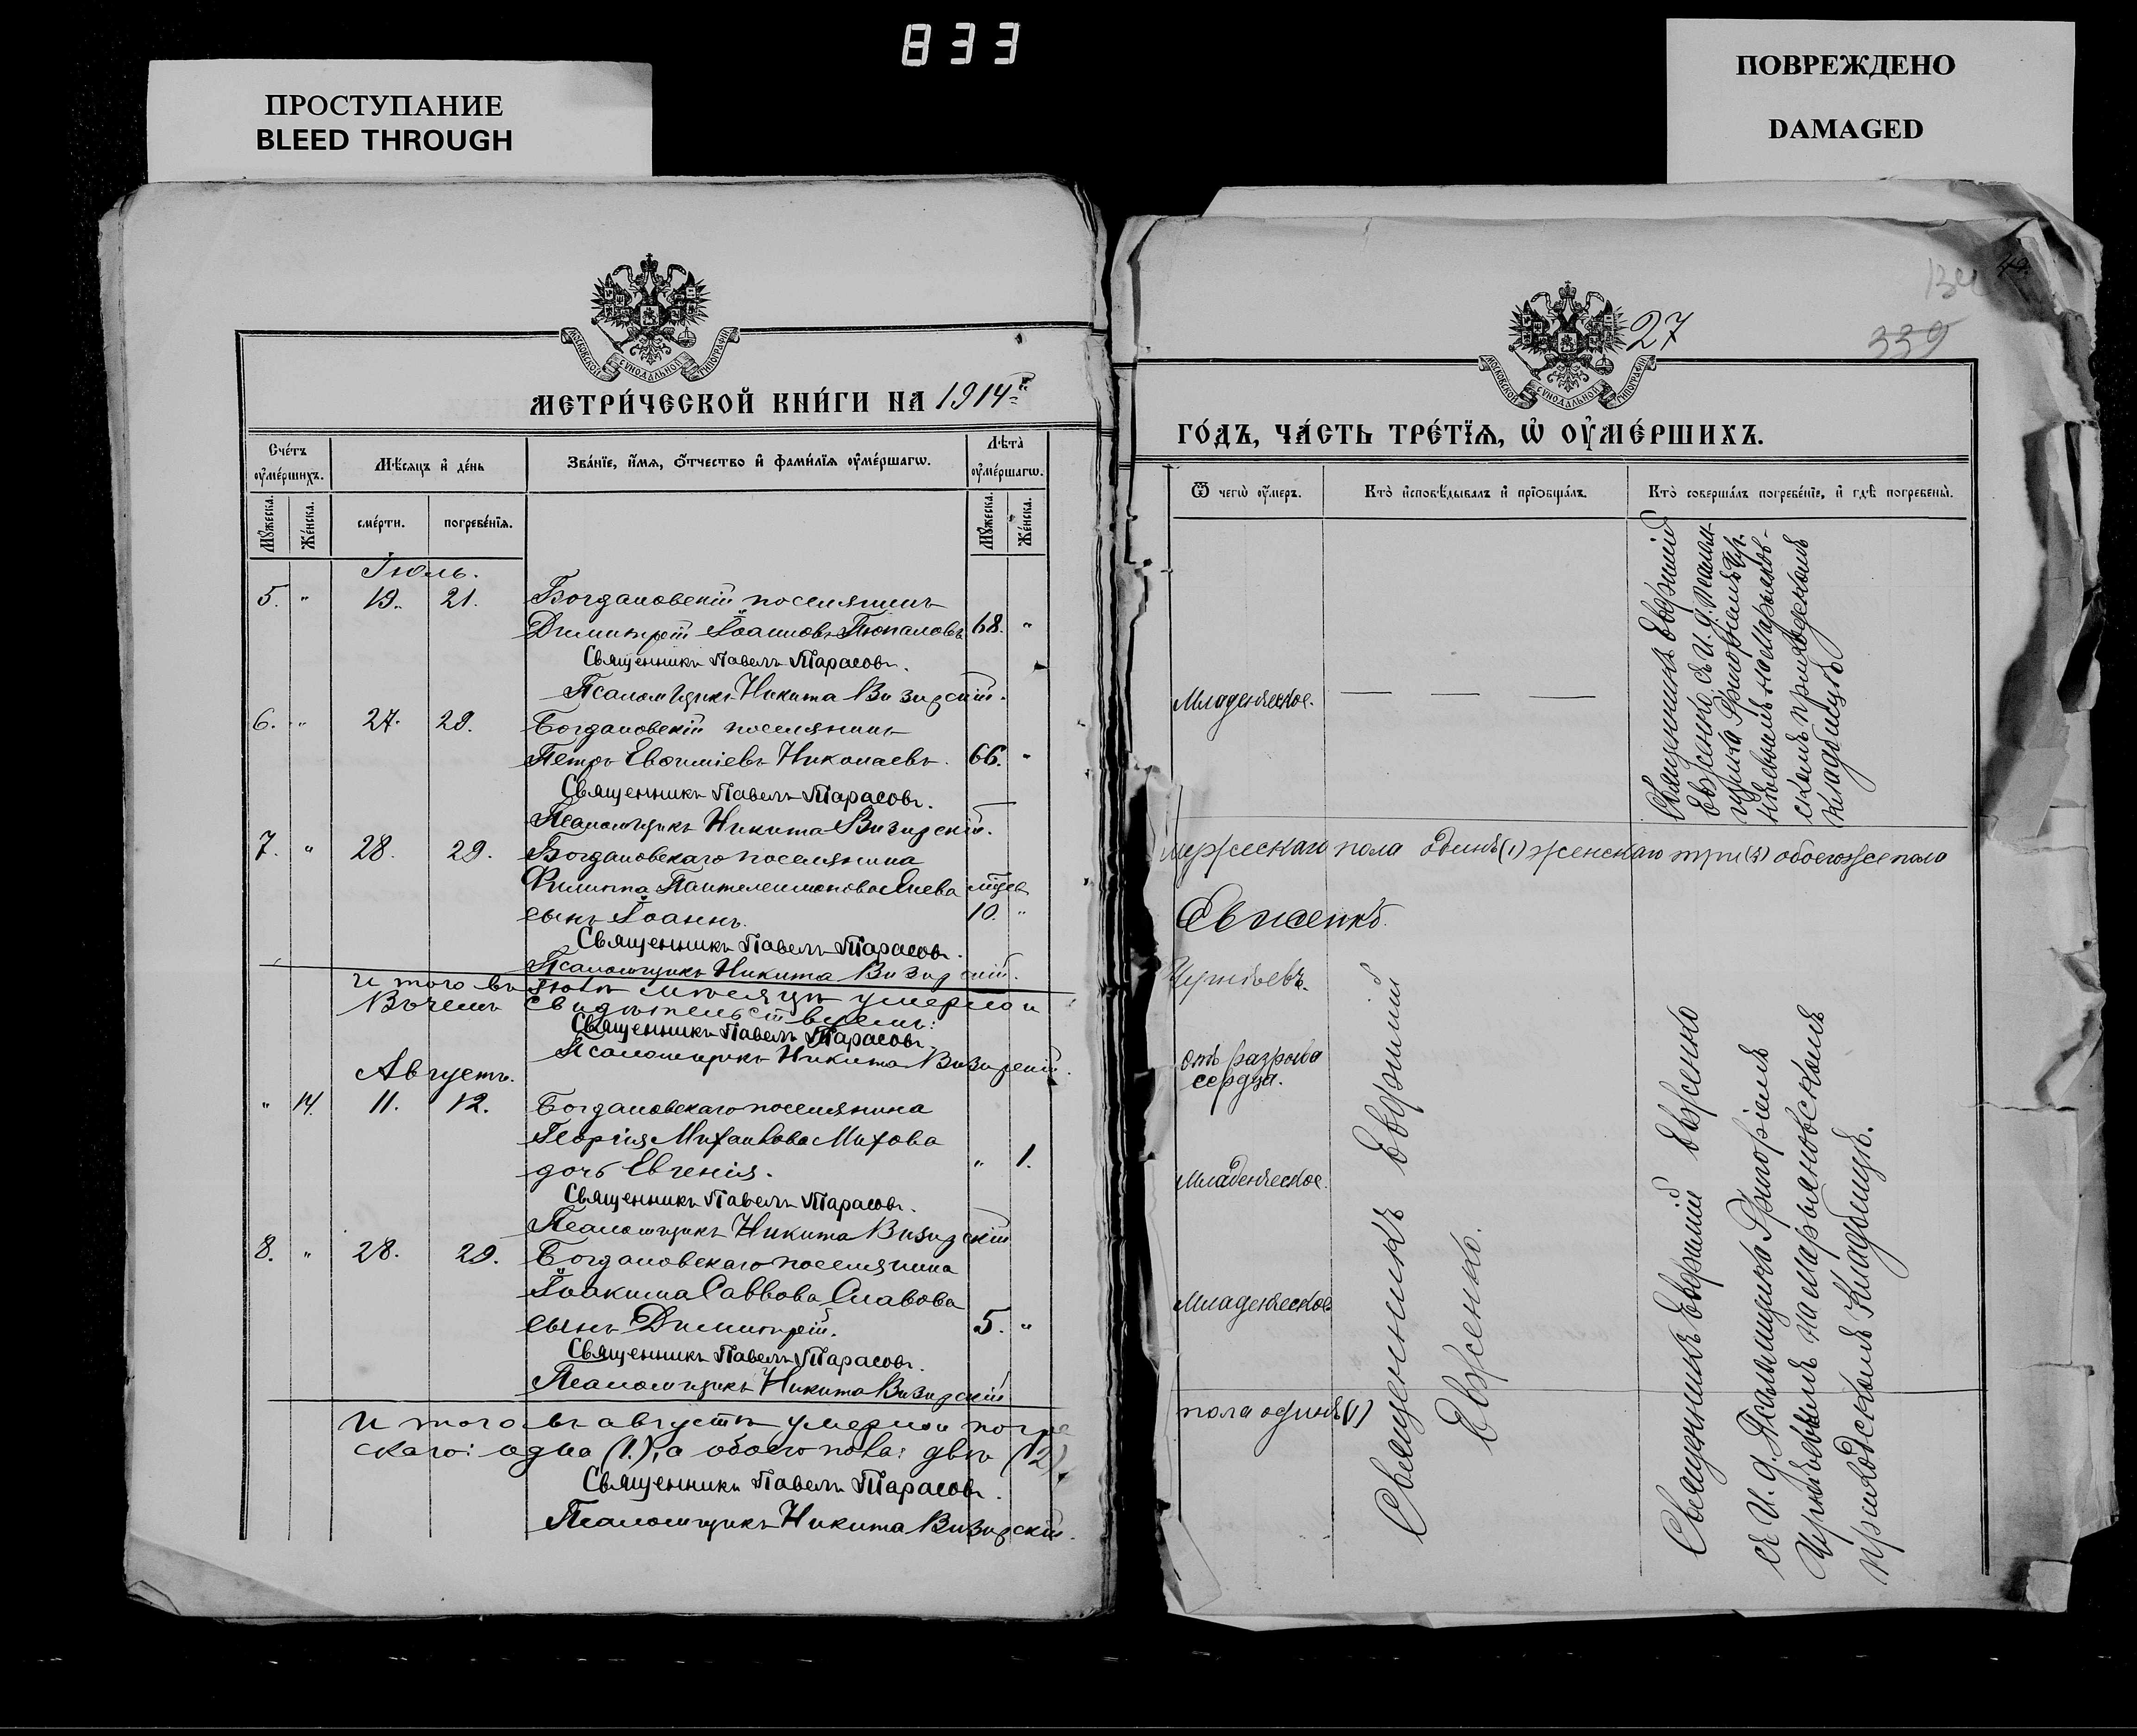 833
ПРОСТУПАНИЕ
BLEED THROUGH
ПОВРЕЖДЕНО
DAMAGED
МОСКОВСКОЙ СѴНОДАЛЬНОЙ ТИПОГРАФІИ
МЕТРИ́ЧЕСКОЙ КНИ́ГИ НА 1914 г.
Сче́тъ ᲂу҆ме́ршихъ.
Мѣ́сяцъ и҆ де́нь
Зва́нїе, и҆́мѧ, ѻ҆́тчество и҆ фами́лїѧ ᲂу҆ме́ршагѡ.
Лѣ́та ᲂу҆ме́ршагѡ.
Мꙋ́жеска.
Же́нска.
сме́рти.
погребе́нїѧ.
Мꙋ́жеска.
Же́нска.
Іюль.
5. " 19. 21. Богдановскій поселянинъ
Димитрій Іоанновъ Тюпаловъ 68. "
Священникъ Павелъ Тарасовъ.
Псаломщикъ Никита Визирскій.
6. " 27. 29. Богдановскій поселянинъ
Петръ Евѳиміевъ Николаевъ. 66. "
Священникъ Павелъ Тарасовъ.
Псаломщикъ Никита Визирскій.
7. " 28. 29. Богдановскаго поселянина
Филиппа Пантелеимонова Енева мѣсц
сынъ Іоаннъ. 10. "
Священникъ Павелъ Тарасовъ.
Псаломщикъ Никита Визирскій.
И того въ Іюлѣ мѣсяцѣ умерло и
Въ чемъ свидѣтельствуемъ:
Священникъ Павелъ Тарасовъ.
Псаломщикъ Никита Визирскій.
Августъ.
" 14. 11. 12. Богдановскаго поселянина
Георгія Михаилова Митова
дочь Евгенія. " 1.
Священникъ Павелъ Тарасовъ.
Псаломщикъ Никита Визирскій
8. " 28. 29. Богдановскаго поселянина
Іоакима Саввова Славова
сынъ Димитрій. 5. "
Священникъ Павелъ Тарасовъ.
Псаломщикъ Никита Визирскій
И того въ августѣ умерло и погре
скаго: одна (1.), а обоего пола: двѣ (2).
Священникъ Павелъ Тарасовъ.
Псаломщикъ Никита Визирскій.
27
339
МОСКОВСКОЙ СѴНОДАЛЬНОЙ ТИПОГРАФІИ
ГО́ДЪ, ЧА́СТЬ ТРЕ́ТЇѦ, Ѡ҆ ОУ҆МЕ́РШИХЪ.
Ѿ чегѡ̀ ᲂу҆́меръ.
Кто̀ и҆сповѣ́дывалъ и҆ прїѡбща́лъ.
Кто̀ соверша́лъ погребе́нїе, и҆ гдѣ̀ погребены̀.
Младенческое.
Священникъ Евфимій
Евженко съ И. д. Псалом-
щика Григоріемъ Чер-
нѣевымъ на Марьянов-
скомъ приходскомъ
кладбищѣ
мужескаго пола одинъ (1) женскаго три (3) обоего же пола
Евженко.
Чернѣевъ.
отъ разрыва
сердца.
Младенческое.
Младенческое
Священникъ Евфимій
Евженко.
Священникъ Евфимій Евженко
съ И. д. Псаломщика Григоріемъ
Чернѣевымъ на Марьяновскомъ
приходскомъ Кладбищѣ.
пола одинъ (1)